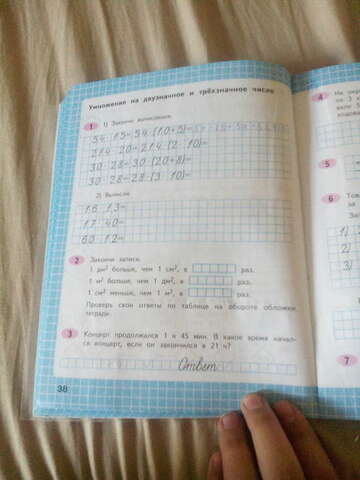 Умножение на двузначное и трёхзначное число
1 1) Закончи вычисления.
54 · 15 = 54 · (10 + 5) =
214 · 20 = 214 · (2 · 10) =
30 · 28 = 30 · (20 + 8) =
30 · 28 = 28 · (3 · 10) =
2) Вычисли.
16 · 13 =
17 · 40 =
60 · 12 =
2 Закончи записи.
1 дм² больше, чем 1 см², в раз.
1 м² больше, чем 1 дм², в раз.
1 см² меньше, чем 1 м², в раз.
Проверь свои ответы по таблице на обороте обложки тетради.
3 Концерт продолжался 1 ч 45 мин. В какое время начал-
ся концерт, если он закончился в 21 ч?
Ответ
38
4
5
6
1)
2)
3)
7